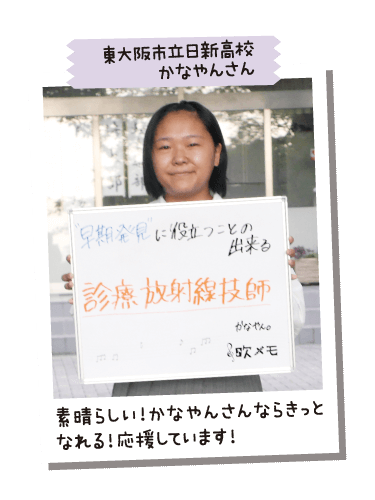 東大阪市立日新高校
かなやんさん
"早期発見"に役立つことの
出来る
診療放射線技師
かなやん。
吹メモ
素晴らしい!かなやんさんならきっと
なれる!応援しています!